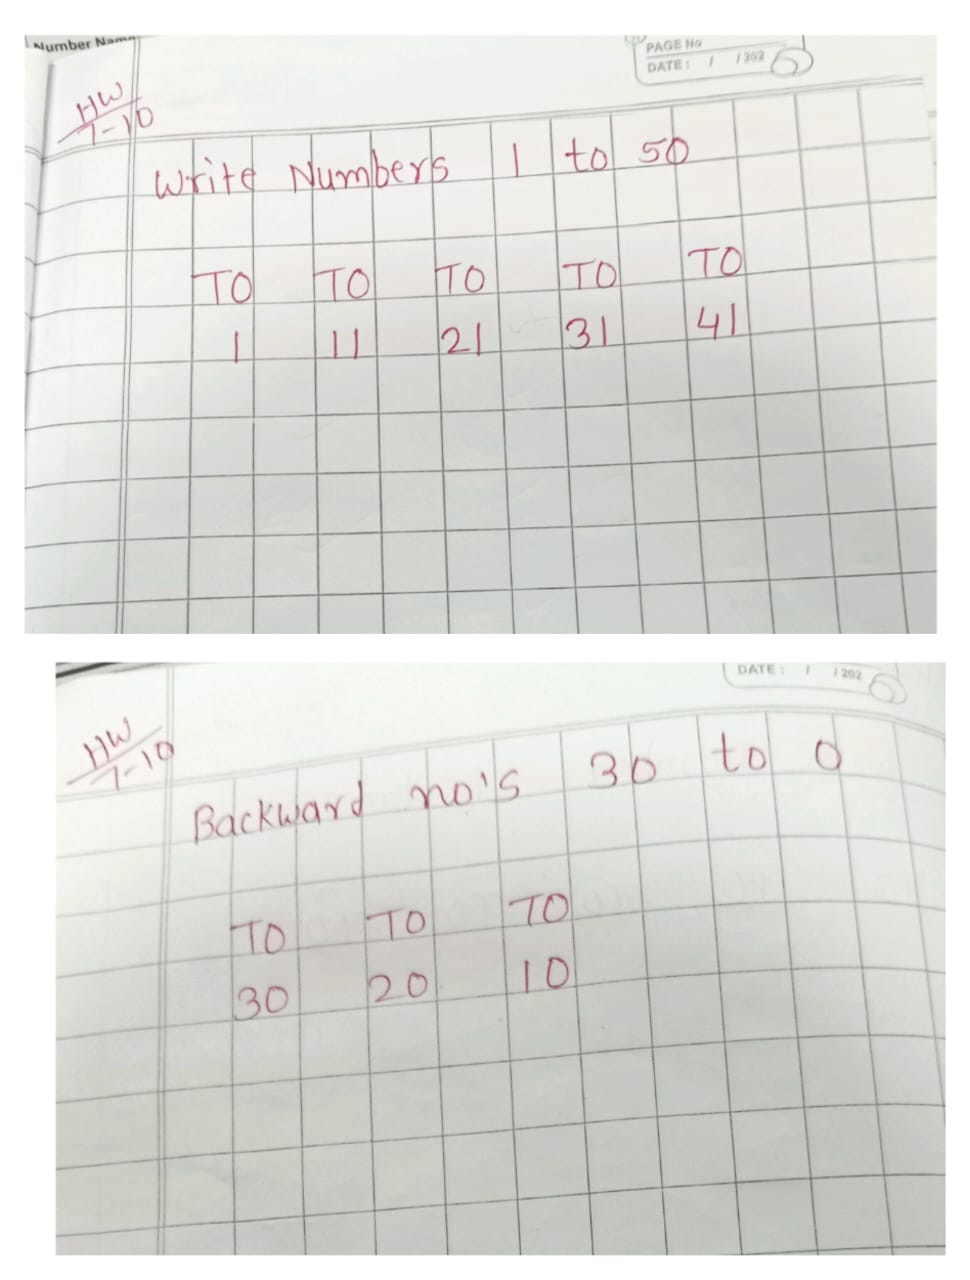 Number Name
PAGE No
DATE: / /202
HW
7-10
Write Numbers 1 to 50
TO TO TO TO TO
1 11 21 31 41
DATE: / /202
HW
7-10
Backward no's 30 to 0
TO TO TO
30 20 10